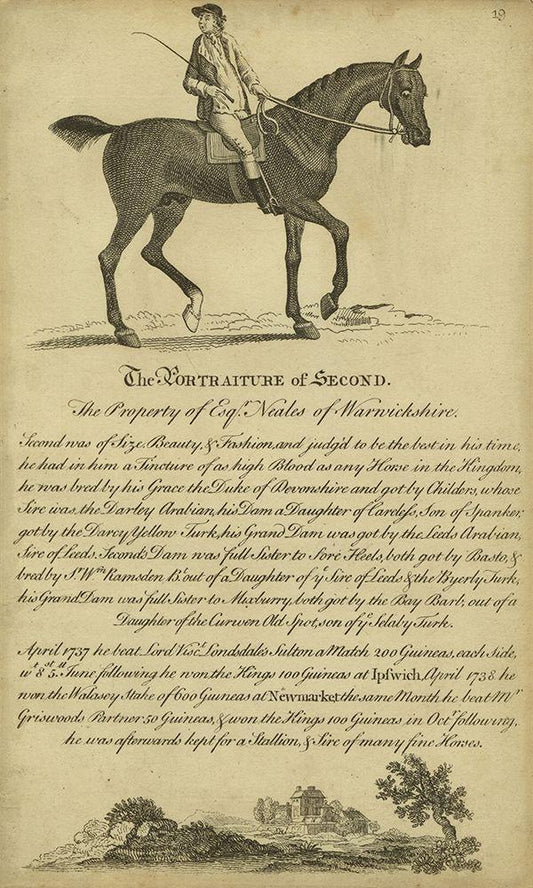 19
The PORTRAITURE of SECOND.
The Property of Esqr. Neales of Warwickshire.
Second was of Size, Beauty, & Fashion, and judg'd to be the best in his time,
he had in him a Tincture of as high Blood as any Horse in the Kingdom,
he was bred by his Grace the Duke of Devonshire and got by Childers, whose
Sire was, the Darley Arabian, his Dam a Daughter of Careless, Son of Spanker,
got by the Darcy Yellow Turk, his Grand Dam was got by the Leeds Arabian,
Sire of Leeds. Seconds Dam was full Sister to Sore Heels, both got by Basto, &
bred by Sr. Wm. Ramsden Bt. out of a Daughter of ye Sire of Leeds & the Byerly Turk,
his Grand Dam was full Sister to Mixburry, both got by the Bay Barb, out of a
Daughter of the Curwen Old Spot, son of ye Selaby Turk.
April 1737 he beat Lord Visct. Londsdales Sulton a Match 200 Guineas, each side,
wt. 8st. 5ll. June following he won the Kings 100 Guineas at Ipswich, April 1738 he
won the Walasey Stake of 600 Guineas at Newmarket the same Month he beat Mr.
Griswoods Partner 50 Guineas, & won the Kings 100 Guineas in Octr. following,
he was afterwards kept for a Stallion, & Sire of many fine Horses.